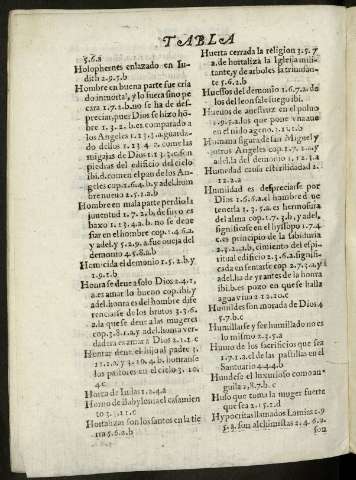 TABLA
5.6.a
Holophernes enlazado en Iu-
dith 2.9.5.b
Hombre en buena parte fue cria
do inmortal, y lo fuera si no pe
cara 1.7.2.b. no se ha de des-
preciar, pues Dios se hizo hõ-
bre 1.3.2.b. es comparado a
los Angeles 1.13.3. guarda-
do dellos 1.23.4. come las
migajas de Dios 1.3.3.c. son
piedras del edificio del cielo
ibi.d. comen el pan de los An-
geles cap.1.6.4.b. y adel. hom
bre nuevo 2.5.1.2.b
Hombre en mala parte perdio la
juventud 1.7.2.b. de suyo es
baxo 1.2.3.4.b. no se deve
fiar en el hombre cop.1.4.6.2
y adel. y 5.2.9.a. fue oveja del
demonio 4.5.8.a.b
Homicida el demonio 1.5.2.b. y
1.9.1.b
Honra se deve a solo Dios 2.4.1,
a. es amar lo bueno cop.ibi. y
adel. honra es del hombre dife
renciarse de los brutos 3.3.6.
a. la que se deve a las mugeres
cop.3.8.1.a. y adel. honra ver-
dadera es amar a Dios 2.1.1.c
Honrar deve el hijo al padre 3.
los pastores en el cielo 3.10.
4.c
Horca de Iudas 1.2.4.a
Horno de Babylonia el casamien
to 3.3.11.c
Hortalizas son los santos en la tie
rra 5.6.2.b
Huerta cerrada la religion 3.5.7
a. de hortaliza la Iglesia mili-
tante, y de arboles la triunfan-
te 5.6.2.b
Huessos del demonio 1.6.7.2. de
los del leon sale fuego ibi.
en el nido ageno 3.1.1.b
Humana figura de san Miguel y
otros Angeles cop.1.7.1.a. y
adel. la del demonio 1.12.3.a
Humedad causa esterilidad 2.2.
1.2.a
Humildad es despreciarse por
Dios 1.6.6.2.a. el hombre de
tenerla 3.3.5.a. es hermosura
del alma cop.1.7.3.b. y adel,
significase en el hyssopo 1.7.4
.c. es principio de la sabiduria
2.5.2.a.b, cimiento del espi-
ritual edificio 2.3.6.2. signifi-
cada en sentarse cop.2.7.3.a. y
adel. ha de yr antes de la honra
ibi.b. es pozo en que se halla
agua viva 2.12.10.c
Humildes son morada de Dios 4
5.7.b.c
Humillarse y ser humillado no es
lo mismo 2.3.5.a
Humo de los sacrificios que sea
1.7.1.2.c. el de las pastillas en el
Santuario 4.4.4.b
Hundese el luxurioso como an-
guila 2.8.7.b.c
Huso que toma la muger fuerte
que sea 2.1.5.2.d
Hypocritas llamados Lamias 2.9
5.a. son alchimistas 2.4.6.2.
son